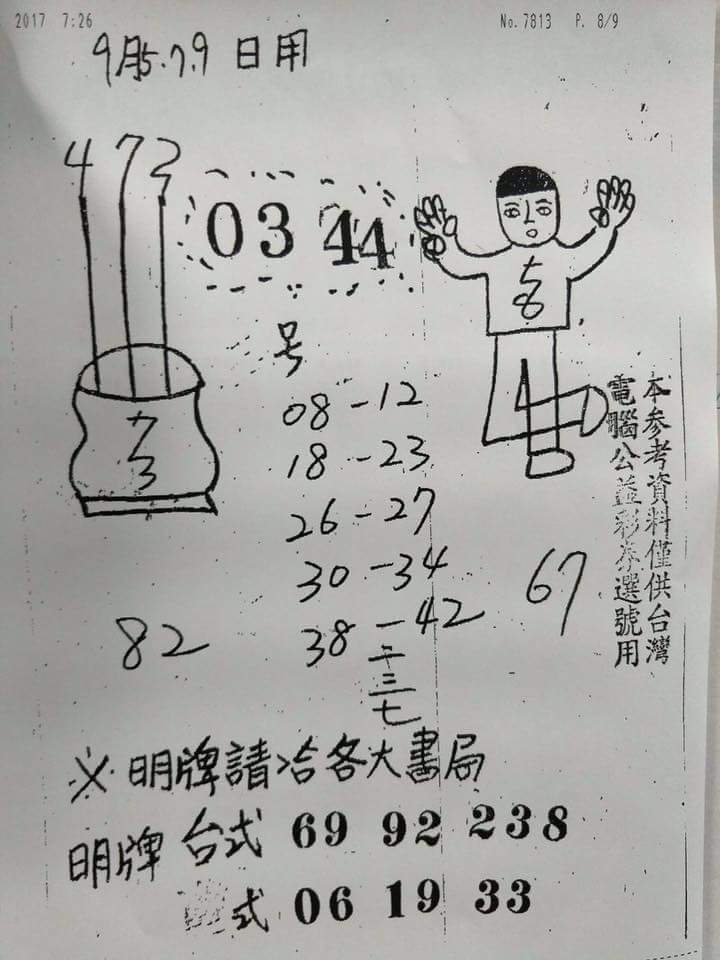 2017 7:26
No.7813 P. 8/9
9月5.7.9日用
4 7 2
03 44
号
08-12
18-23
26-27
30-34
38-42
二
三
七
七
3
七
8
82
67
本參考資料僅供台灣
電腦公益彩券選號用
※明牌請洽各大書局
明牌 台式 69 92 238
式 06 19 33